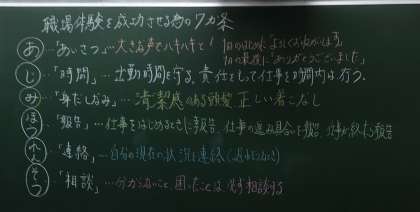 職場体験を成功させる為の7カ条
あ 「あいさつ」…大きな声でハキハキと! 1日のはじめは「よろしくおねがいします」
1日の最後に「ありがとうございました」
じ 「時間」…出勤時間を守る。責任をもって仕事を時間内に行う。
み 「身だしなみ」…清潔感のある頭髪 正しい着こなし
ほう 「報告」…仕事をはじめるときに報告、仕事の進み具合を報告、仕事が終えたら報告
れん 「連絡」…自分の現在の状況を連絡
そう 「相談」…分からないこと、困ったことは、必ず相談する